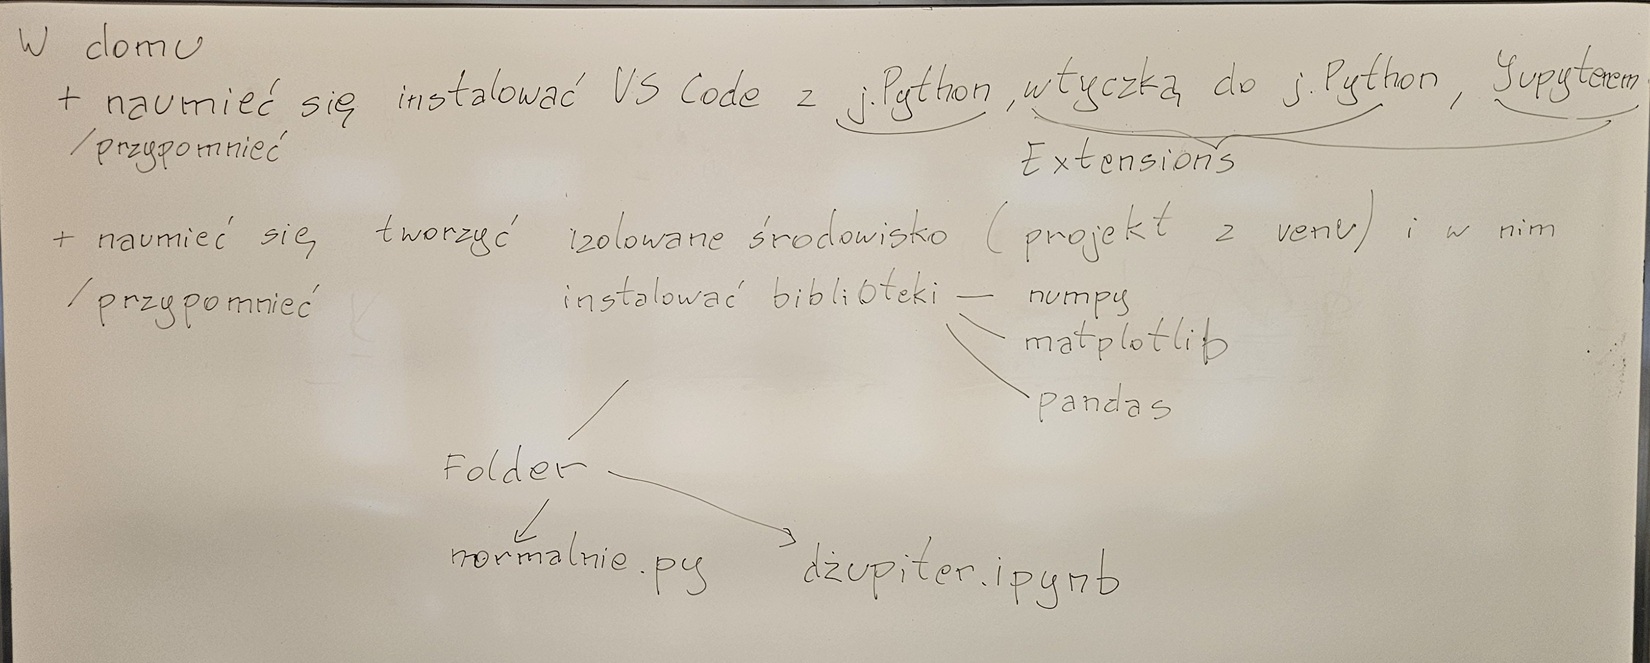 W domu
+ naumieć się instalować VS Code z j.Python, wtyczką do j.Python, Jupyterem
/przypomnieć
Extensions
+ naumieć się tworzyć izolowane środowisko (projekt z venv) i w nim
/przypomnieć instalować biblioteki — numpy
matplotlib
pandas
Folder
normalnie.py
dżupiter.ipynb